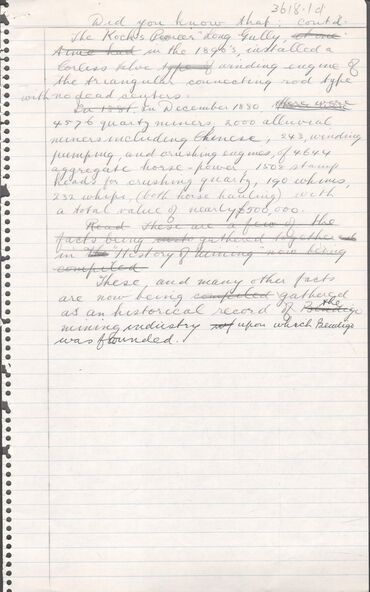 3618.1d
Did you know that; contd.
The Koch's Pioneer "Long Gully,
in the 1890's, installed a
Corliss valve type of winding engine of
the triangular connecting rod type
with no dead centers.
In 1881, In December 1880, there were
4576 quartz miners, 2000 alluvial
miners including Chinese, 243, winding
pumping, and crushing engines, of 4644
aggregate horse-power 1503 stamp
heads for crushing quartz, 190 whims,
232 whips, (both horse hauling) with
a total value of nearly £500,000.
Read These are a few of the
facts being gathered together
in the "History of mining" now being
compiled
These, and many other facts
are now being compiled gathered
as an historical record of Bendigo the
mining industry upon which Bendigo
was founded.